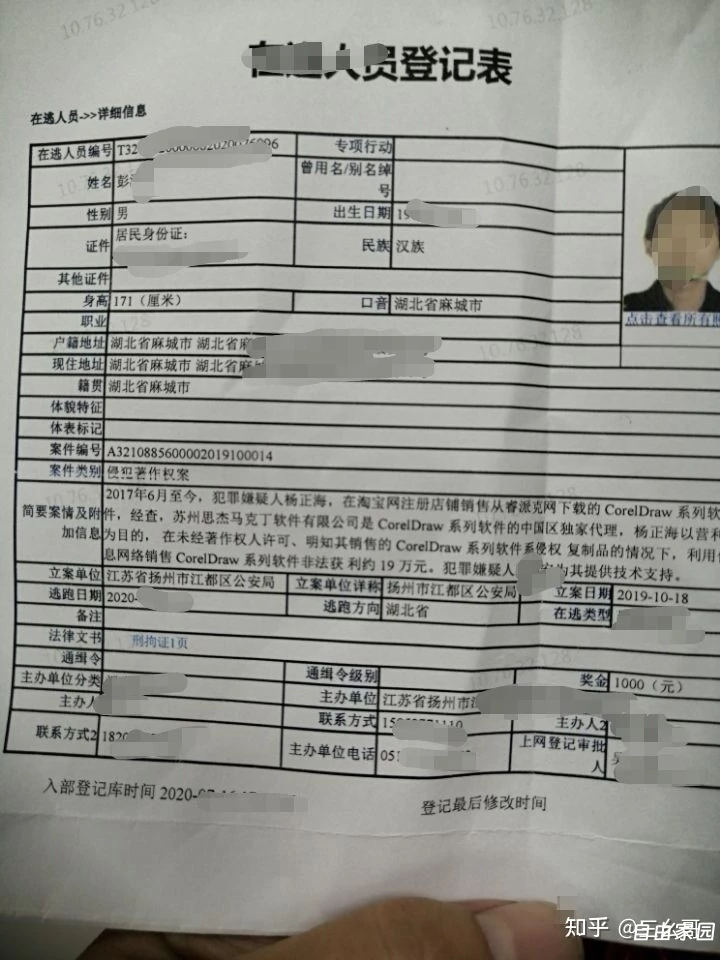 10.76.32.128
在逃人员登记表
在逃人员->>详细信息
在逃人员编号 T32 专项行动
姓名 彭 曾用名/别名绰号
10.76.32.128
性别 男 出生日期 19
证件 居民身份证: 民族 汉族
其他证件
身高 171（厘米） 口音 湖北省麻城市
点击查看所有照
职业
10.76.32.128
户籍地址 湖北省麻城市 湖北省麻
现住地址 湖北省麻城市 湖北省麻
籍贯 湖北省麻城市
体貌特征
体表标记
案件编号 A3210885600002019100014
案件类别 侵犯著作权案
简要案情及附加信息 2017年6月至今，犯罪嫌疑人杨正海，在淘宝网注册店铺销售从睿派克网下载的 CorelDraw 系列软
件，经查，苏州思杰马克丁软件有限公司是 CorelDraw 系列软件的中国区独家代理，杨正海以营利
为目的，在未经著作权人许可、明知其销售的 CorelDraw 系列软件系侵权 复制品的情况下，利用
息网络销售 CorelDraw 系列软件非法获 利约 19 万元。犯罪嫌疑人 为其提供技术支持。
立案单位 江苏省扬州市江都区公安局 立案单位详称 扬州市江都区公安局 立案日期 2019-10-18
逃跑日期 2020- 逃跑方向 湖北省 在逃类型
备注
法律文书 刑拘证1页
通缉令 通缉令级别 奖金 1000（元）
主办单位分类 主办单位 江苏省扬州市
主办人 联系方式 主办人2
联系方式2 1820 主办单位电话 051 上网登记审批人
入部登记库时间 2020- 登记最后修改时间
知乎
自由家园